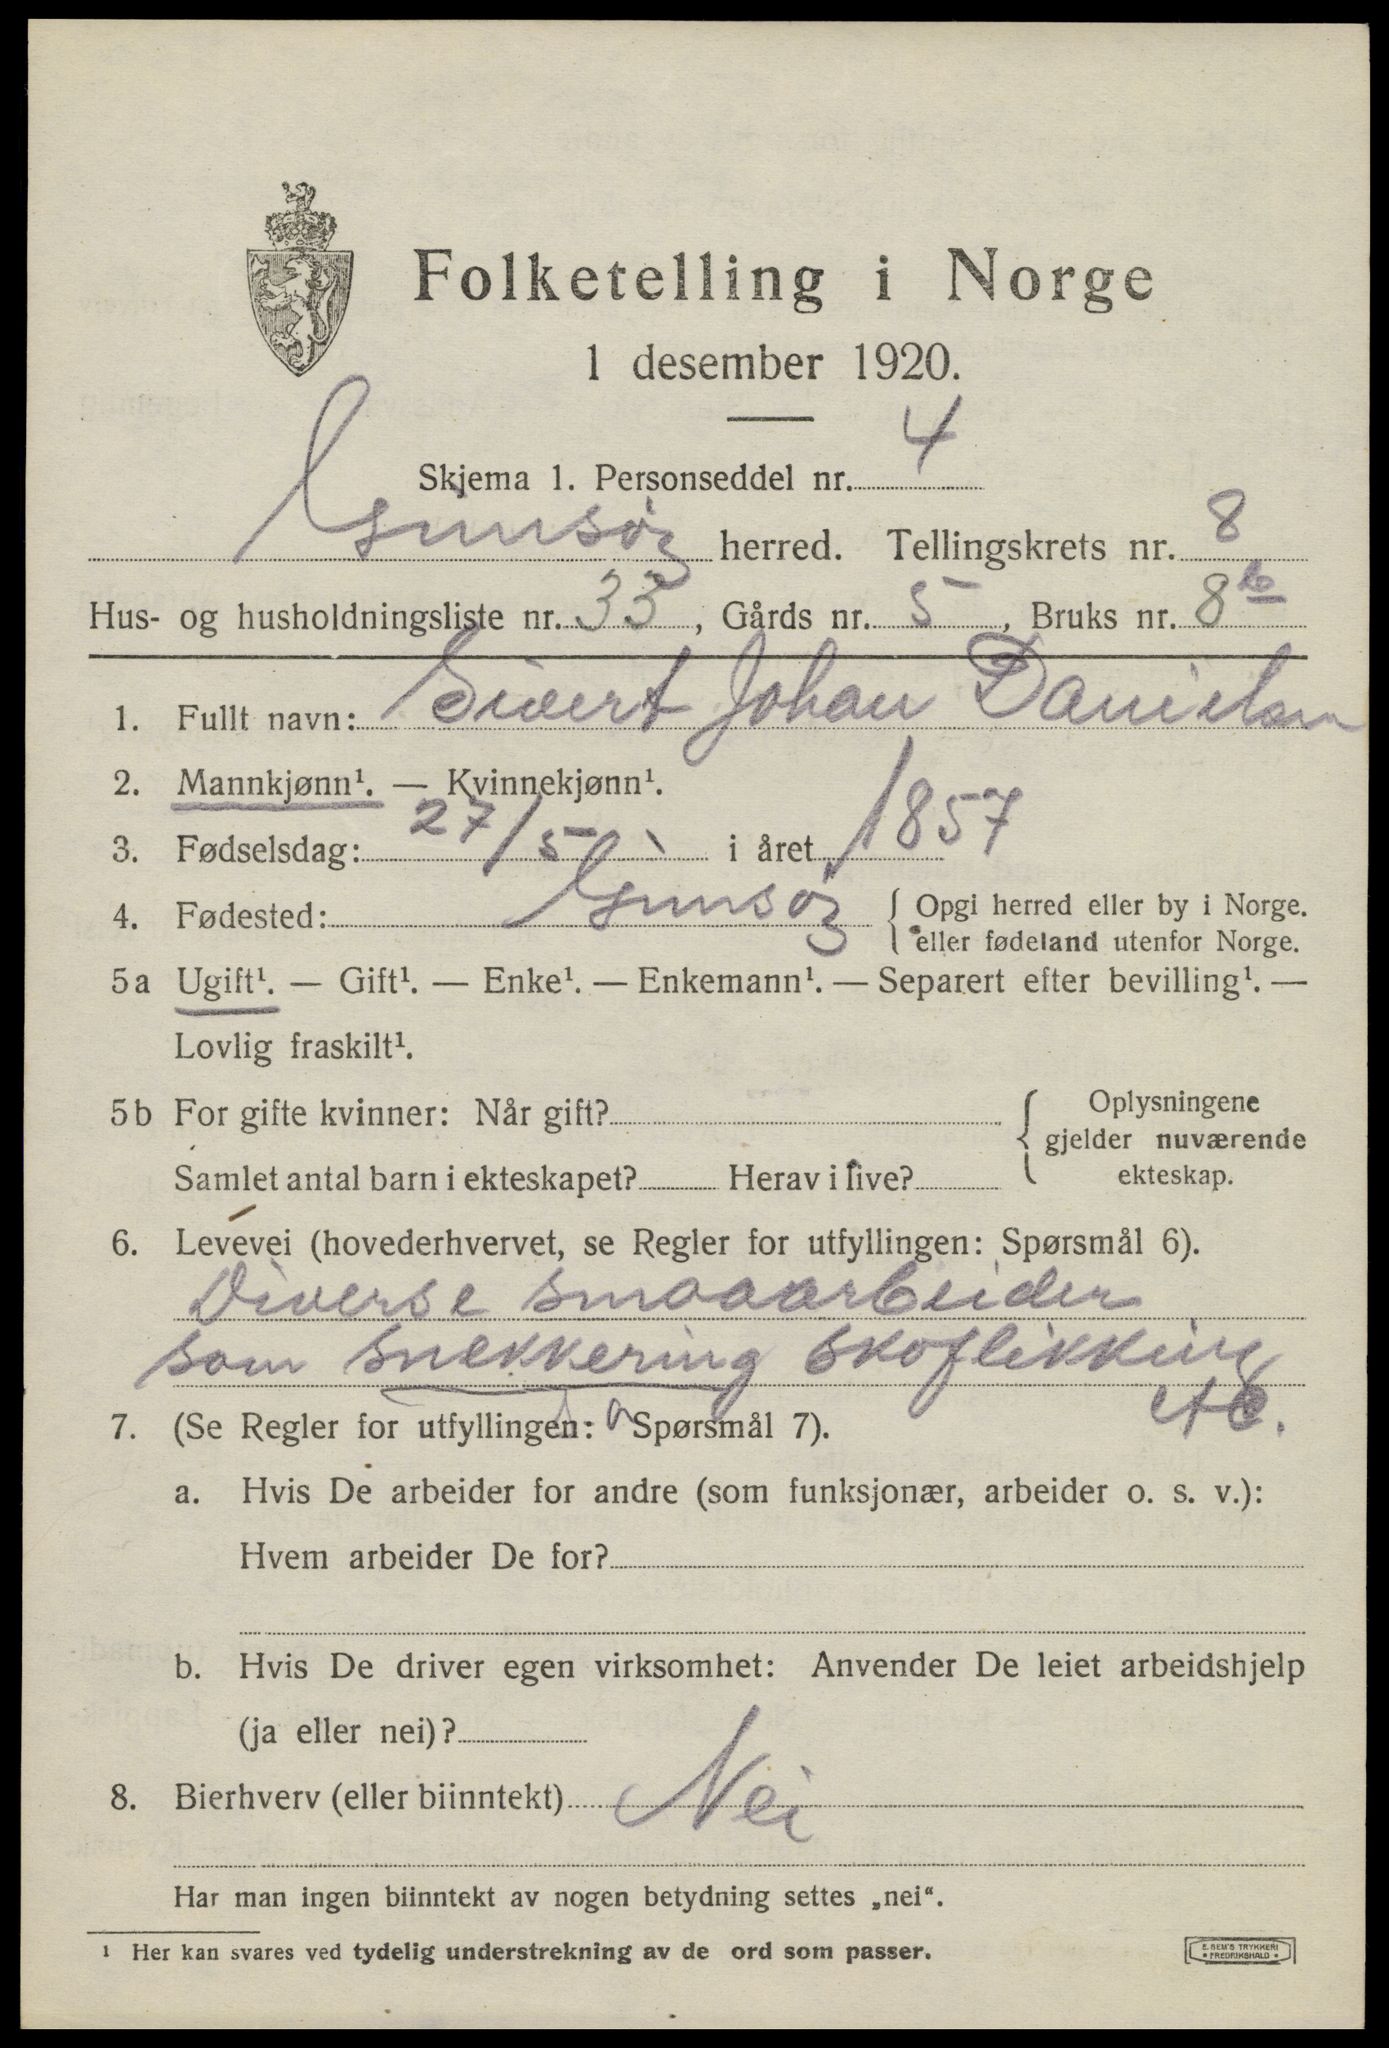 Folketelling i Norge
1 desember 1920.
Skjema 1. Personseddel nr. 4
Gimsøy herred. Tellingskrets nr. 8
Hus- og husholdningsliste nr. 33, Gårds nr. 5, Bruks nr. 8 b
1. Fullt navn: Sivert Johan Danielsen
2. Mannkjønn¹. — Kvinnekjønn¹.
3. Fødselsdag: 27/5 i året 1857
4. Fødested: Gimsøy { Opgi herred eller by i Norge.
eller fødeland utenfor Norge.
5a Ugift¹. — Gift¹. — Enke¹. — Enkemann¹. — Separert efter bevilling¹. —
Lovlig fraskilt¹.
5b For gifte kvinner: Når gift? { Oplysningene
gjelder nuværende
Samlet antal barn i ekteskapet? Herav i live? ekteskap.
6. Levevei (hovederhvervet, se Regler for utfyllingen: Spørsmål 6).
Diverse smaaarbeider
som snekkering skoflikking
etc.
7. (Se Regler for utfyllingen: Spørsmål 7).
a. Hvis De arbeider for andre (som funksjonær, arbeider o. s. v.):
Hvem arbeider De for?
b. Hvis De driver egen virksomhet: Anvender De leiet arbeidshjelp
(ja eller nei)?
8. Bierhverv (eller biinntekt) Nei
Har man ingen biinntekt av nogen betydning settes „nei“.
¹ Her kan svares ved tydelig understrekning av de ord som passer.
E. SEM'S TRYKKERI
• FREDRIKSHALD •